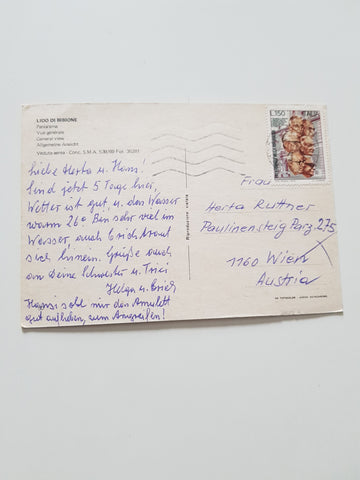 LIDO DI BIBIONE
Panorama
Vue générale
General view
Allgemeine Ansicht
Veduta aerea - Conc. S.M.A.
L.150 ITALIA
Riproduzione vietata
Liebe Herta u. Hans!
Sind jetzt 5 Tage hier,
Wetter ist gut, u. das Wasser
warm 26° Bin sehr viel im
Wasser, auch Erich traut
sich hinein. Grüße auch
an Deine Schwester u.
Helga u. Erich
Hansi soll mir das Amulett
gut aufheben, zum Angreifen!
Frau
Herta Ruttner
Paulinensteig Parz. 275
1160 Wien
Austria